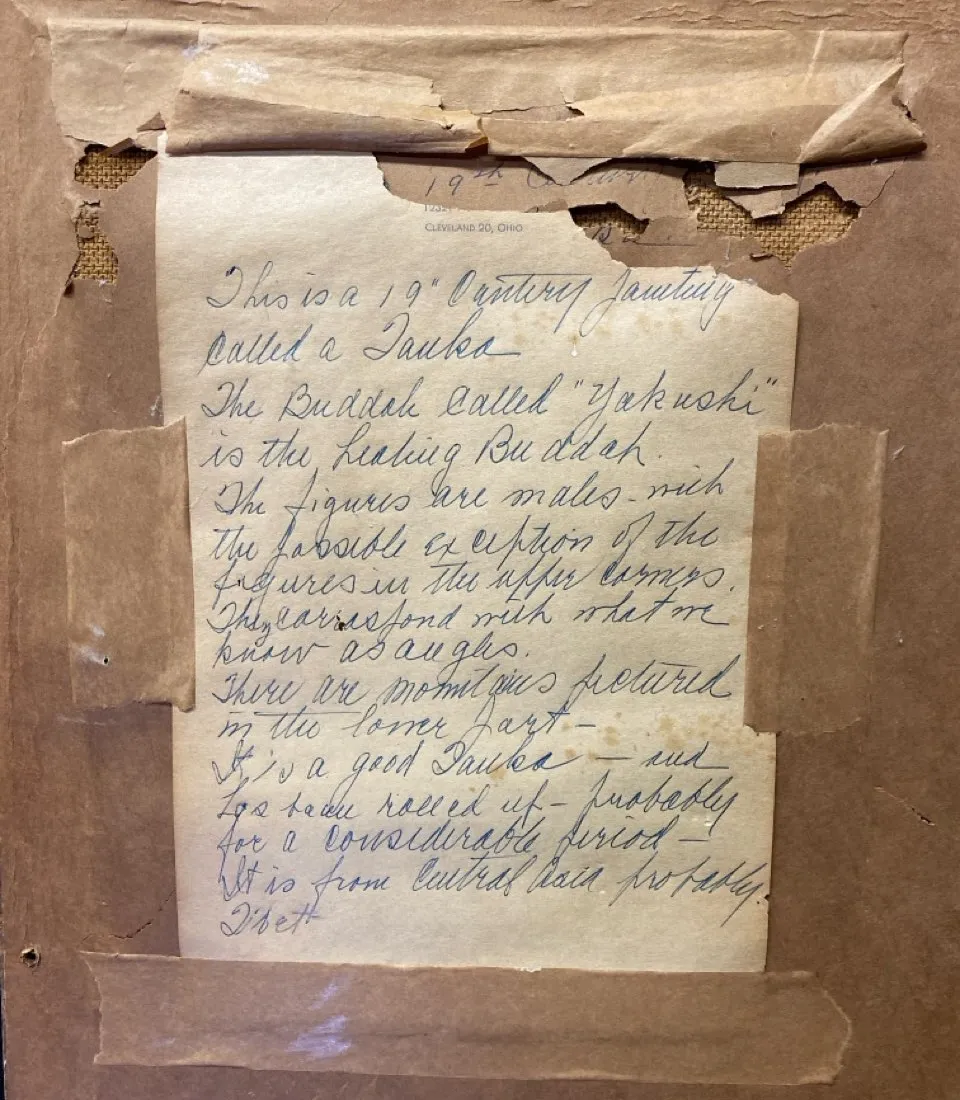 19th
CLEVELAND 20, OHIO
This is a 19" Cantery Painting
called a Tanka
The Buddah called "Yakushi"
is the healing Buddah.
The figures are males - with
the possible exception of the
figures in the upper corners.
They corraspond with what we
know as angles.
There are mountains pictured
in the lower part -
It is a good Tanka - and
has been rolled up - probably
for a considerable period -
It is from Central Asia probably.
Tibet